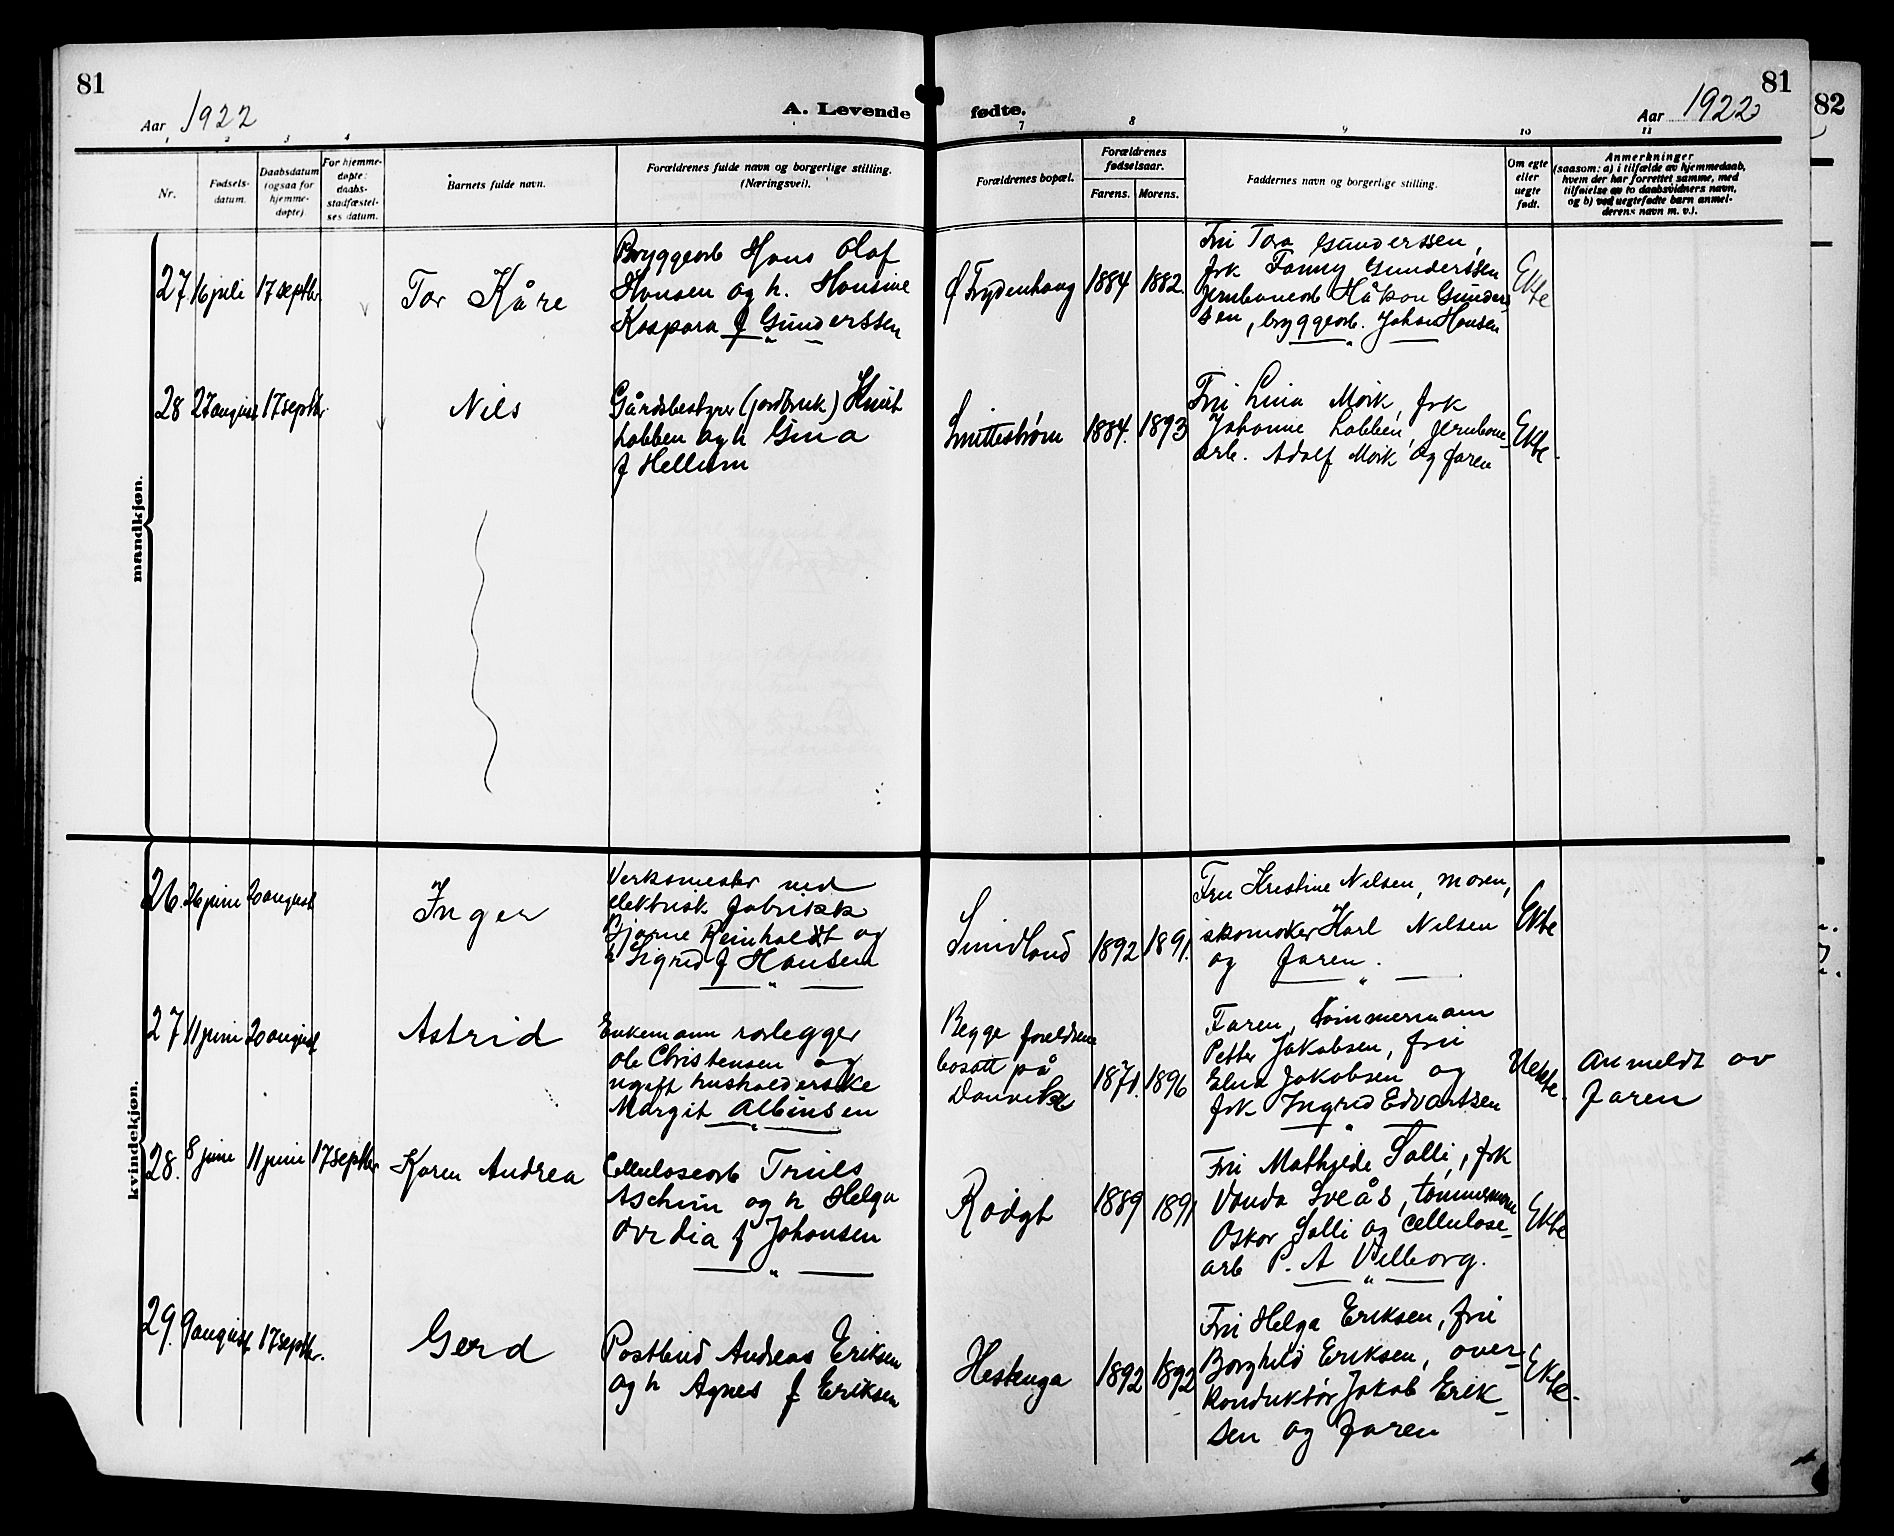 81
81
82
Aar 1922
A. Levende fødte.
Aar 1922
1 2 3 4 7 8 9 10 11
Nr.
Fødsels-
datum.
Daabsdatum
(ogsaa for
hjemme-
døpte).
For hjemme-
døpte:
daabs-
stadfæstel-
ses datum.
Barnets fulde navn.
Forældrenes fulde navn og borgerlige stilling.
(Næringsvei).
Forældrenes bopæl.
Forældrenes
fødselsaar.
Farens. Morens.
Faddernes navn og borgerlige stilling.
Om egte
eller
uegte
født.
Anmerkninger
(saasom: a) i tilfælde av hjemmedaab,
hvem der har forrettet samme, med
tilføielse av to daabsvidners navn,
og b) ved uegtefødte barn anmel-
derens navn m. v.).
mandkjøn.
27 16 juli 17 septbr.
Tor Kåre
Bryggearb Hans Olaf
Hansen og h. Hansine
Kaspara f Gunderssen
Ø Frydenhaug
1884 1882.
Fru Tora Gunderssen,
frk Fanny Gunderssen
Jernbanearb Håkon Gunders
sen, bryggearb. Johan Hansen
Ekte
28 27 august 17 septbr.
Nils
Gårdsbestyrer (jordbruk) Knut
Lobben og h Gina
f Hellum
Smittestrøm
1884. 1893
Fru Lina Mørk, frk
Johanne Lobben, jernbane
arb. Adolf Mørk og faren
Ekte.
kvindekjøn.
26. 26 juni 20 august
Inger
Verksmester ved
elektrisk fabrikk
Bjarne Reinholdt og
h Sigrid f Hansen
Smidland
1892 1891.
Fru Kristine Nilsen, moren,
skomaker Karl Nilsen
og faren.
Ekte
27 11 juni 20 august
Astrid
Enkemann rørlegger
Ole Christensen og
ugift husholderske
Margit Albinsen
Begge foreldrene
bosatt på
Danvik
1871. 1896
Faren, tømmermann
Petter Jakobsen, fru
Elna Jakobsen og
frk Ingrid Edvartsen
Uekte.
Anmeldt av
faren
28. 8 juni 11 juni 17 septbr
Karen Andrea
Cellulosearb Truls
Aschim og h Helga
Ovedia f Johansen
Rødgt
1889 1891
Fru Mathilde Solli, frk
Vanda Sveås, tømmermann
Oskar Solli og cellulose-
arb P. A Vilborg.
Ekte
29. 9 august 17 septbr.
Gerd
Postbud Andreas Eriksen
og h Agnes f Eriksen
1892 1892
Fru Helga Eriksen, fru
Borghild Eriksen, over-
konduktør Jakob Erik-
sen og faren
Ekte.